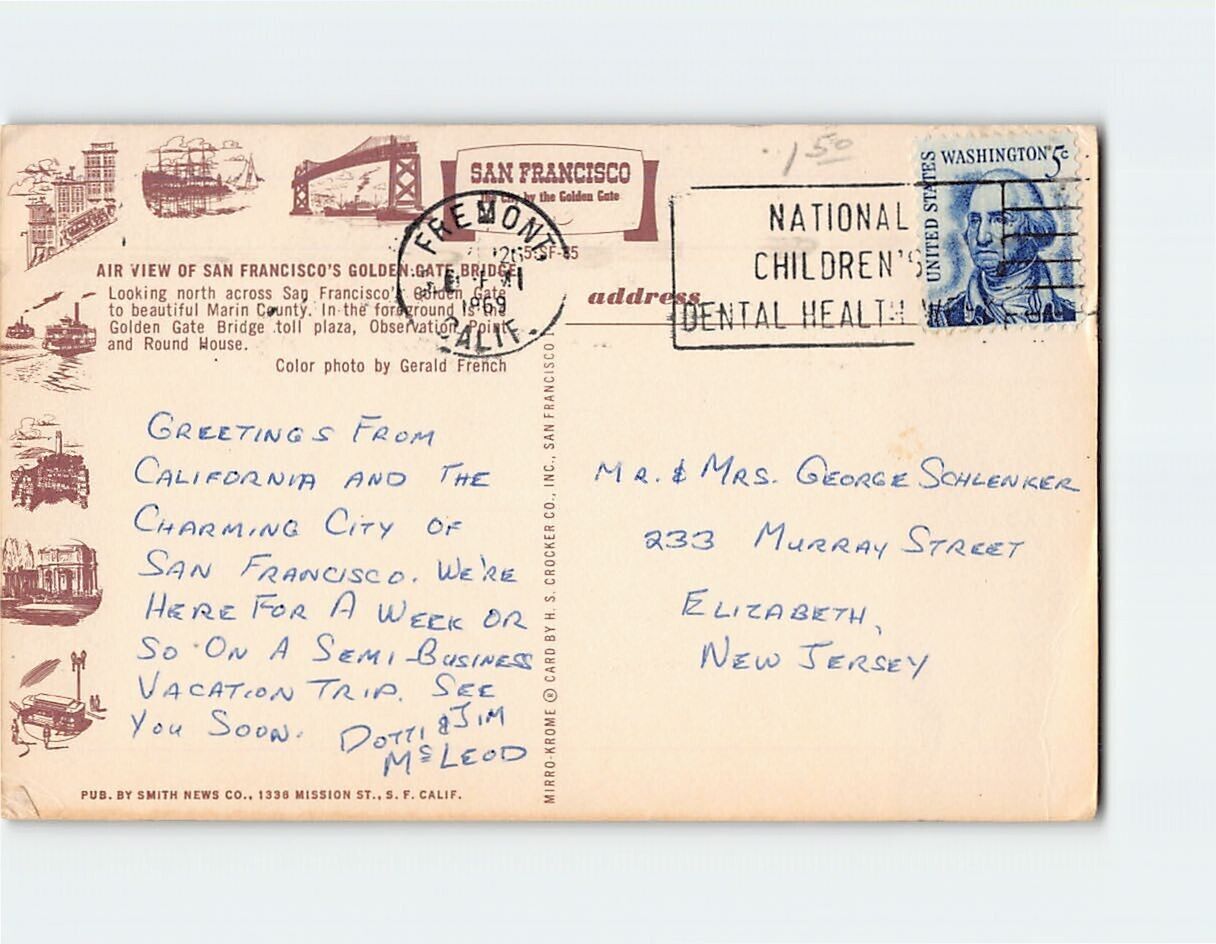 1 50
SAN FRANCISCO
by the Golden Gate
UNITED STATES
WASHINGTON 5c
FREMONT
1969
CALIF.
NATIONAL
CHILDREN'S
DENTAL HEALTH
AIR VIEW OF SAN FRANCISCO'S GOLDEN GATE BRIDGE
Looking north across San Francisco's Golden Gate
to beautiful Marin County. In the foreground is the
Golden Gate Bridge toll plaza, Observation Point
and Round House.
Color photo by Gerald French
address
GREETINGS FROM
CALIFORNIA AND THE
CHARMING CITY OF
SAN FRANCISCO. WE'RE
HERE FOR A WEEK OR
SO ON A SEMI-BUSINESS
VACATION TRIP. SEE
YOU SOON.
DOTTI & JIM
McLEOD
MIRRO-KROME ® CARD BY H. S. CROCKER CO., INC., SAN FRANCISCO
MR. & MRS. GEORGE SCHLENKER
233 MURRAY STREET
ELIZABETH,
NEW JERSEY
PUB. BY SMITH NEWS CO., 1336 MISSION ST., S. F. CALIF.